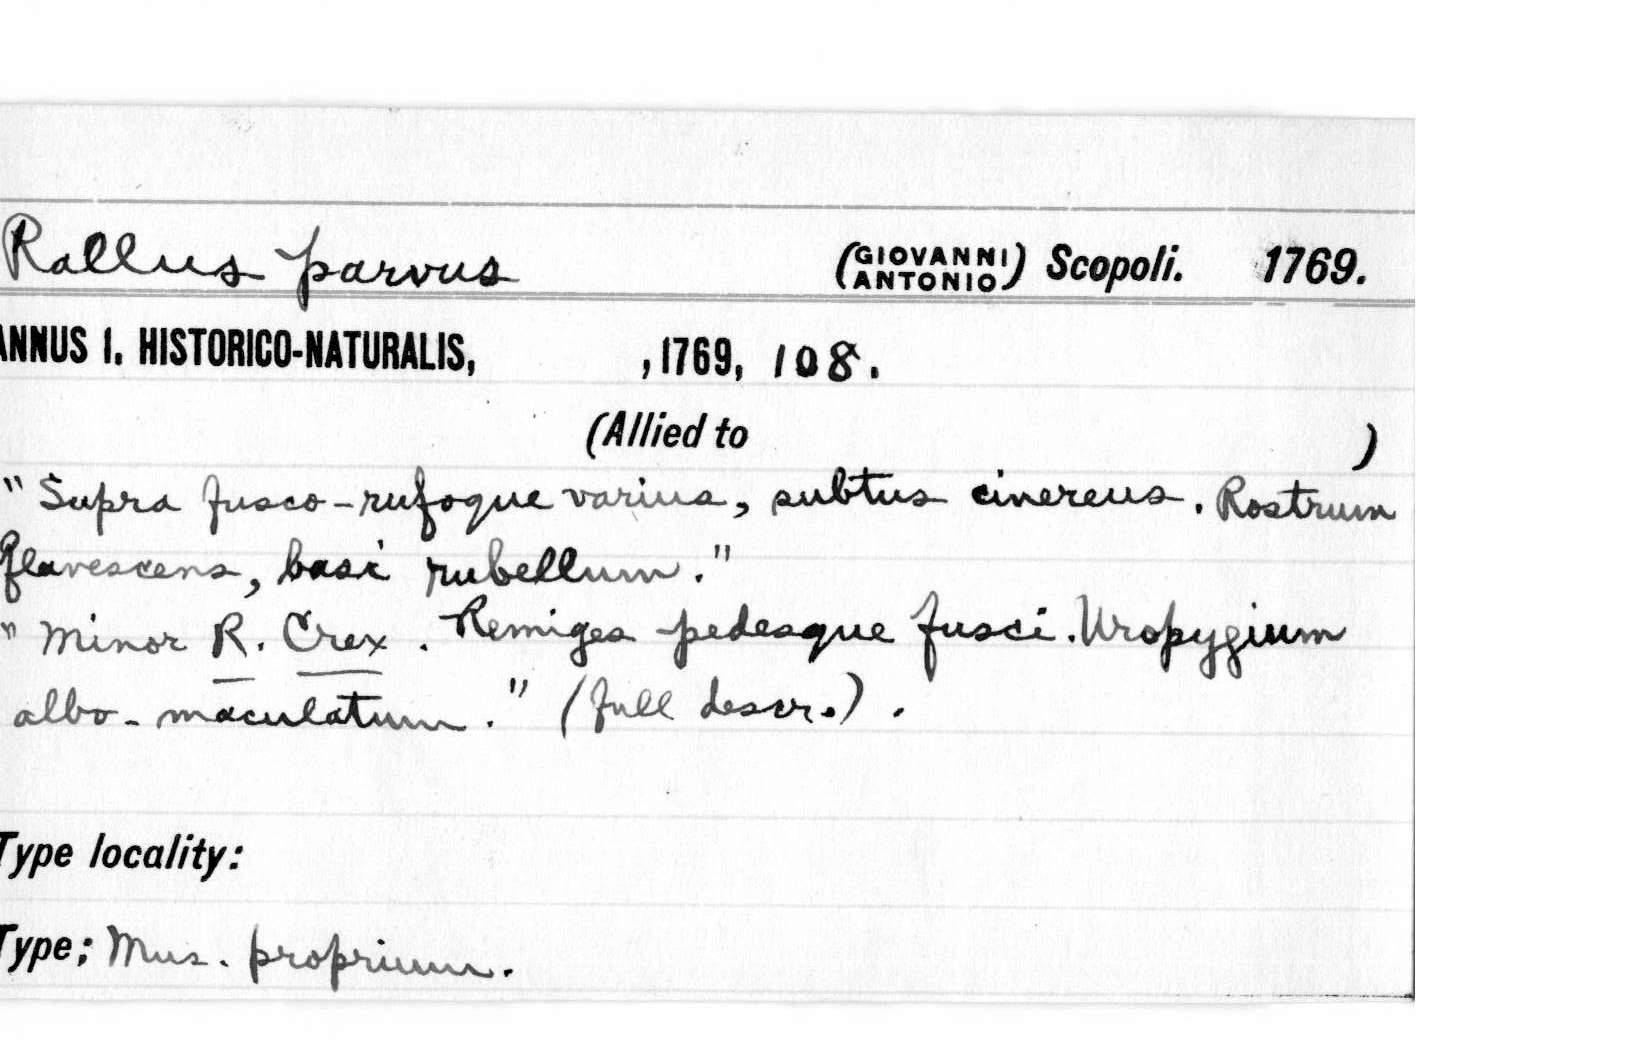 Rallus parvus (GIOVANNI ANTONIO) Scopoli. 1769.
ANNUS I. HISTORICO-NATURALIS, , 1769, 108.
(Allied to )
" Supra fusco-rufoque varius, subtus cinereus. Rostrum
flavescens, basi rubellum."
" Minor R. Crex. Remiges pedesque fusci. Uropygium
albo-maculatum." (full descr.).
Type locality:
Type; Mus. proprium.